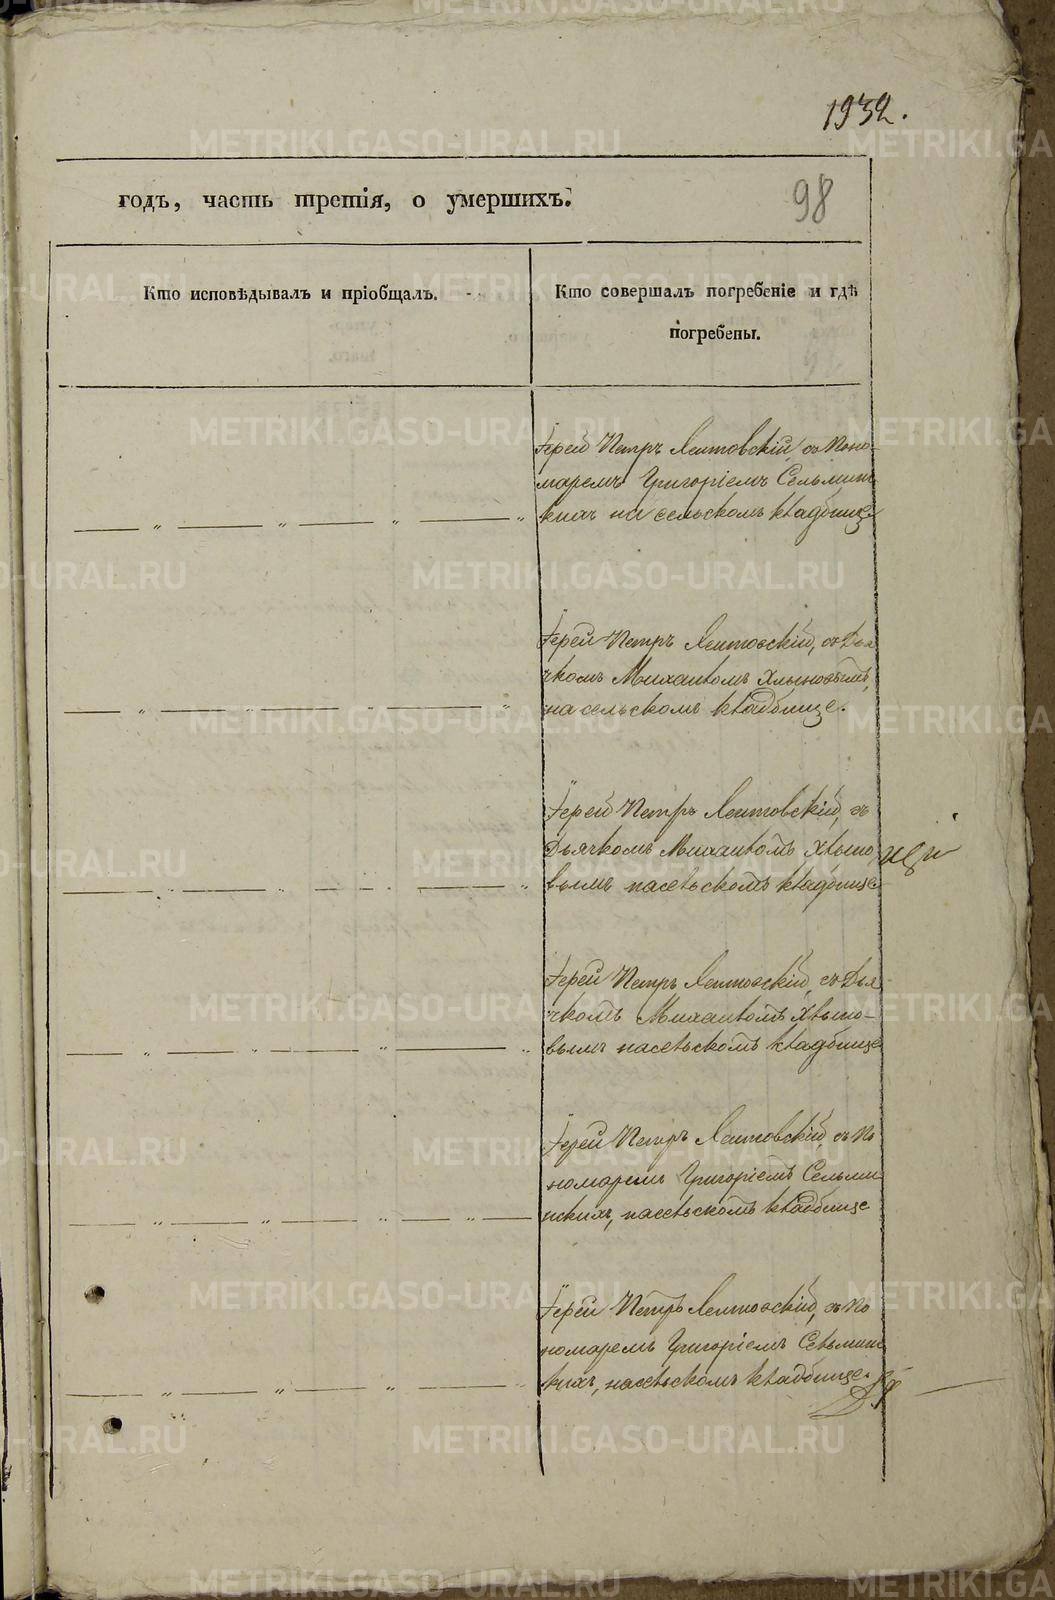 1932.
годъ, часть третія, о умершихъ.
98
Кто исповѣдывалъ и пріобщалъ.
Кто совершалъ погребеніе и гдѣ
погребены.
Іерей Петръ Лентовскій, съ Поно-
маремъ Григоріемъ Сельмин
скихъ на сельскомъ кладбище
Іерей Петръ Лентовскій, съ Дья
чкомъ Михаиломъ Хлыновымъ,
на сельскомъ кладбище.
Іерей Петръ Лентовскій, съ
Дьячкомъ Михаиломъ Хлыно
вымъ на сельскомъ кладбище
Іерей Петръ Лентовскій, съ Дья
чкомъ Михаиломъ Хлыно-
вымъ на сельскомъ кладбище
Іерей Петръ Лентовскій, съ По
номаремъ Григоріемъ Сельми
нскихъ, на сельскомъ кладбище
Іерей Петръ Лентовскій, съ По
номаремъ Григоріемъ Сельминс
кихъ, на сельскомъ кладбище.
METRIKI.GASO-URAL.RU